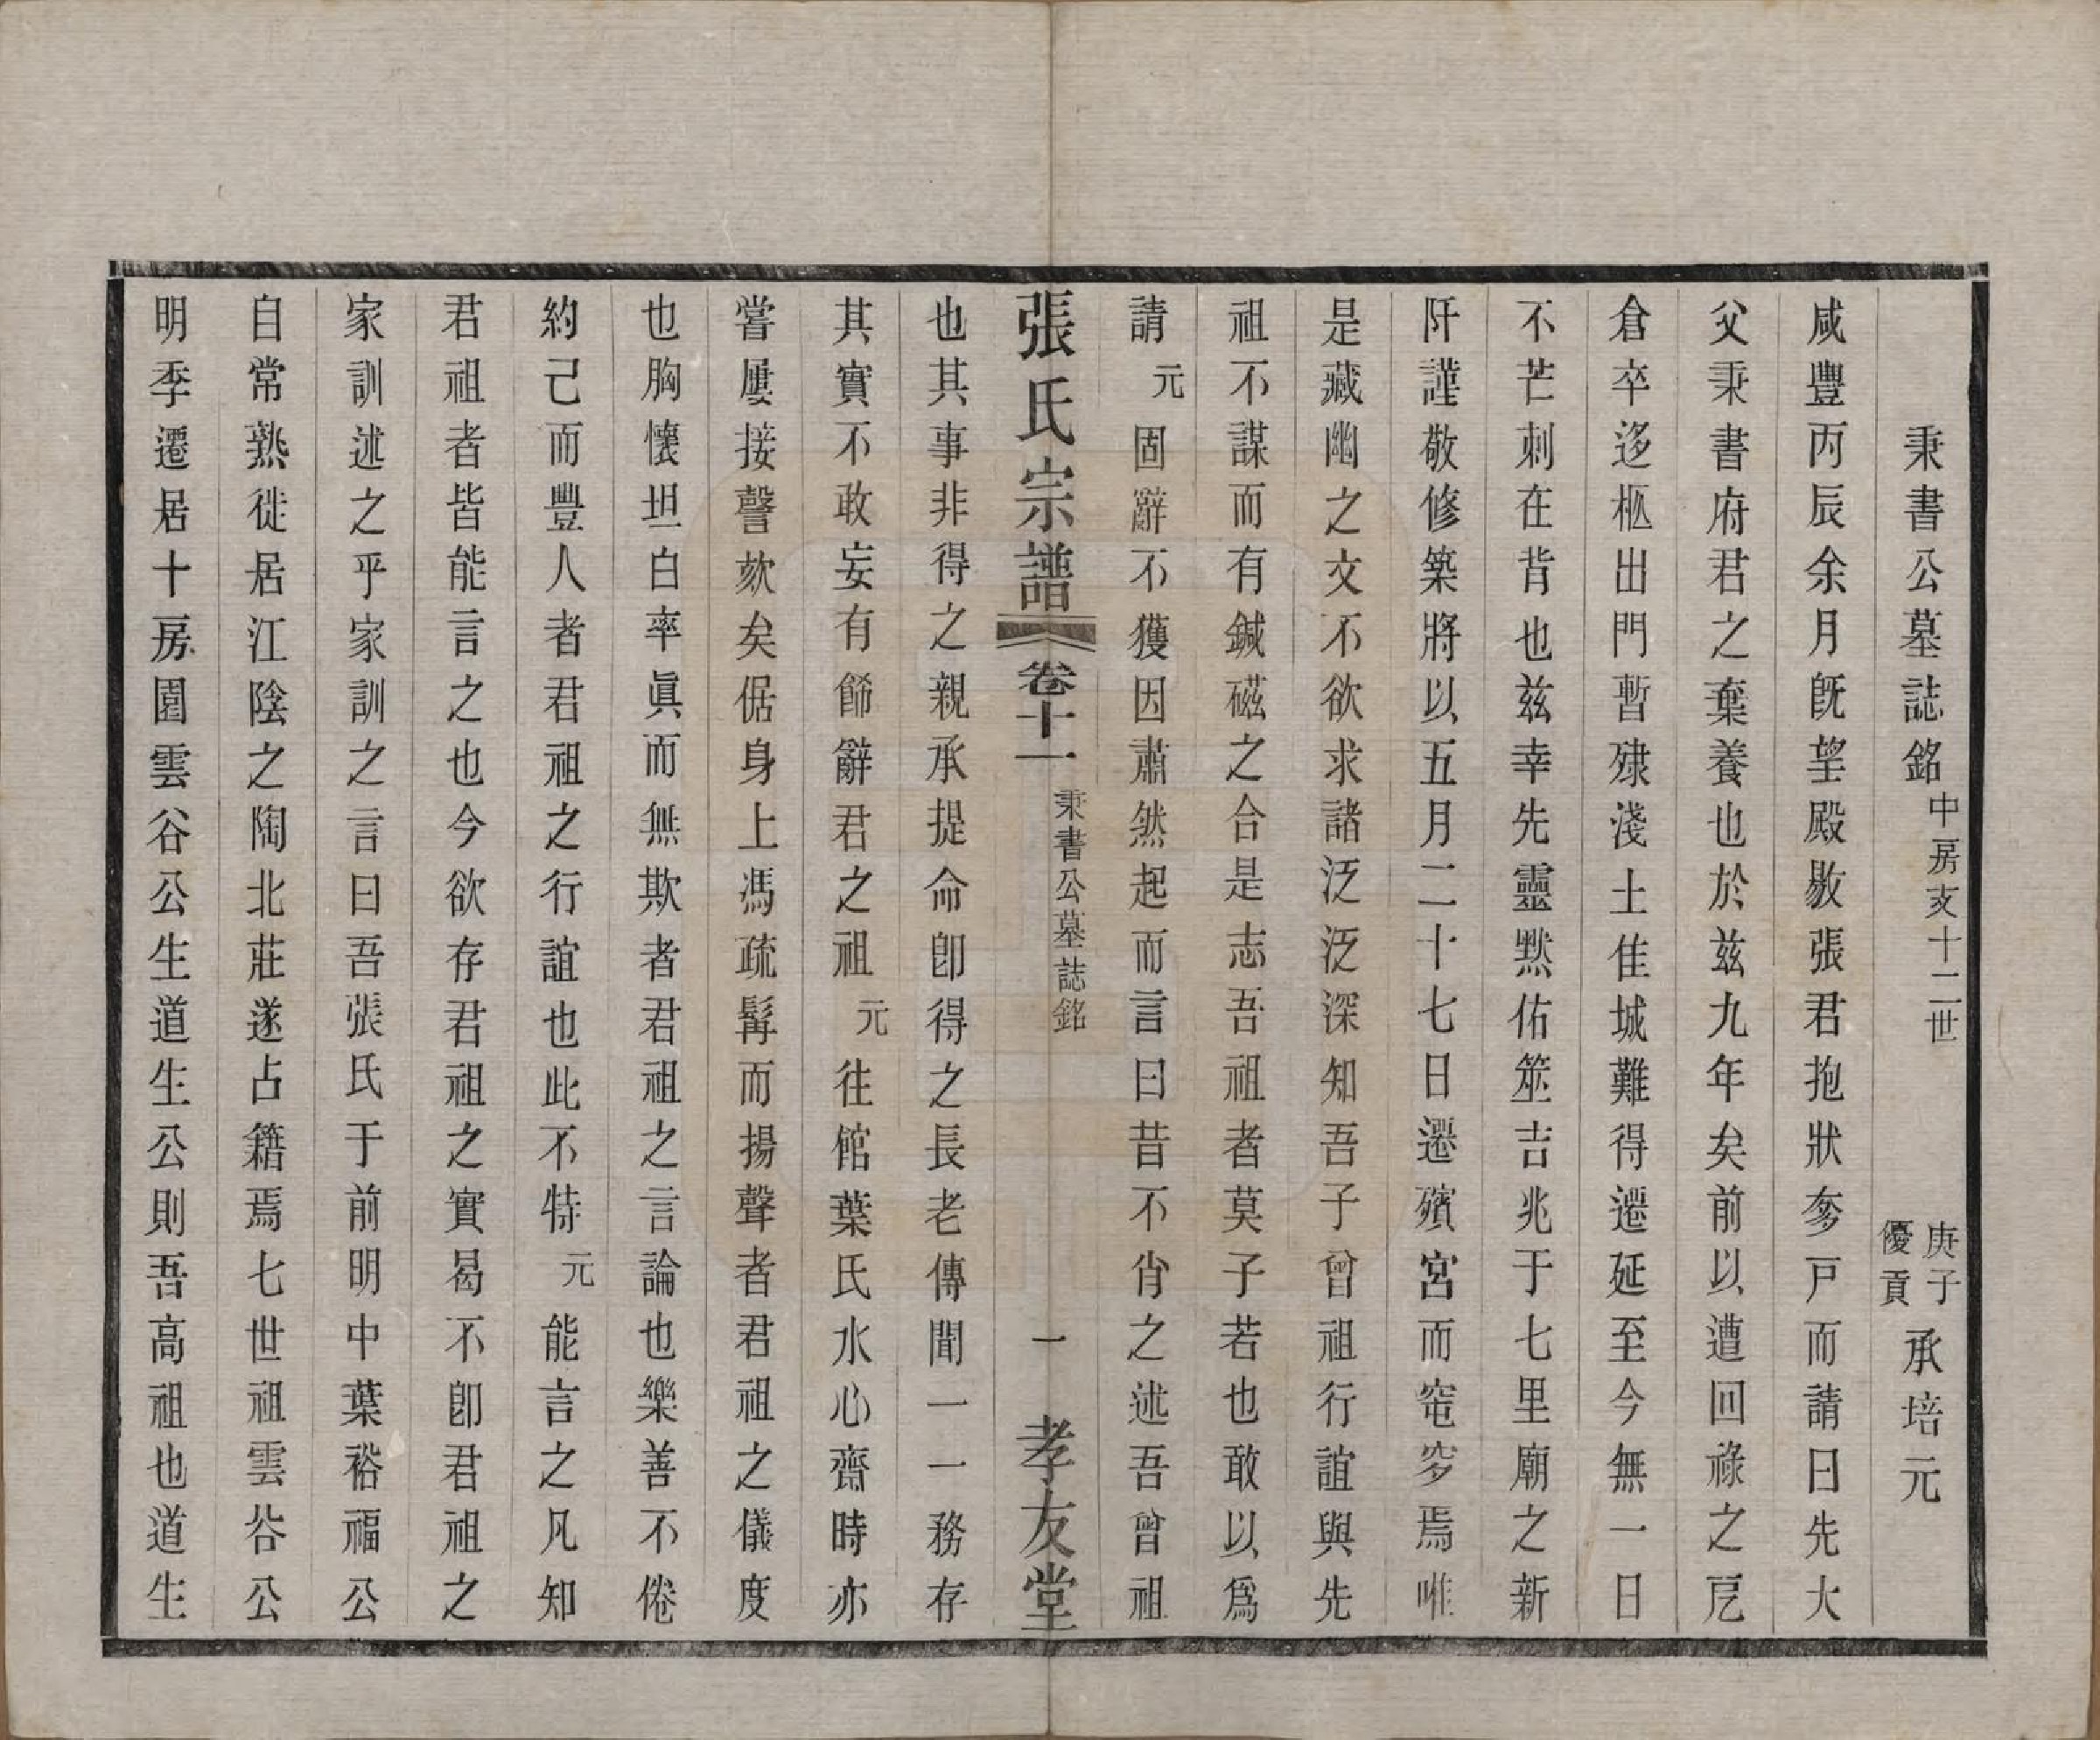 秉書公墓誌銘 中房支十二世 庚子優貢 承培元
咸豐丙辰余月旣望殿敭張君抱狀奓戸而請曰先大
父秉書府君之葬養也於兹九年矣前以遭回祿之戹
倉卒迻柩出門暫殔淺土佳城難得遷延至今無一日
不芒刺在背也兹幸先靈黙佑筮吉兆于七里廟之新
阡謹敬修築將以五月二十七日遷殯宮而窀穸焉唯
是藏幽之文不欲求諸泛泛深知吾子曾祖行誼與先
祖不謀而有鍼磁之合是志吾祖者莫子若也敢以爲
請元固辭不獲因肅然起而言曰昔不肖之述吾曾祖
張氏宗譜 卷十一 秉書公墓誌銘 一 孝友堂
也其事非得之親承提命卽得之長老傳聞一一務存
其實不敢妄有餙辭君之祖元往館葉氏水心齋時亦
嘗屢接謦欬矣倨身上馮疏髯而揚聲者君祖之儀度
也胸懷坦白率眞而無欺者君祖之言論也樂善不倦
約己而豐人者君祖之行誼也此不特元能言之凡知
君祖者皆能言之也今欲存君祖之實曷不卽君祖之
家訓述之乎家訓之言曰吾張氏于前明中葉裕福公
自常熟徙居江陰之陶北莊遂占籍焉七世祖雲谷公
明季遷居十房圍雲谷公生道生公則吾高祖也道生